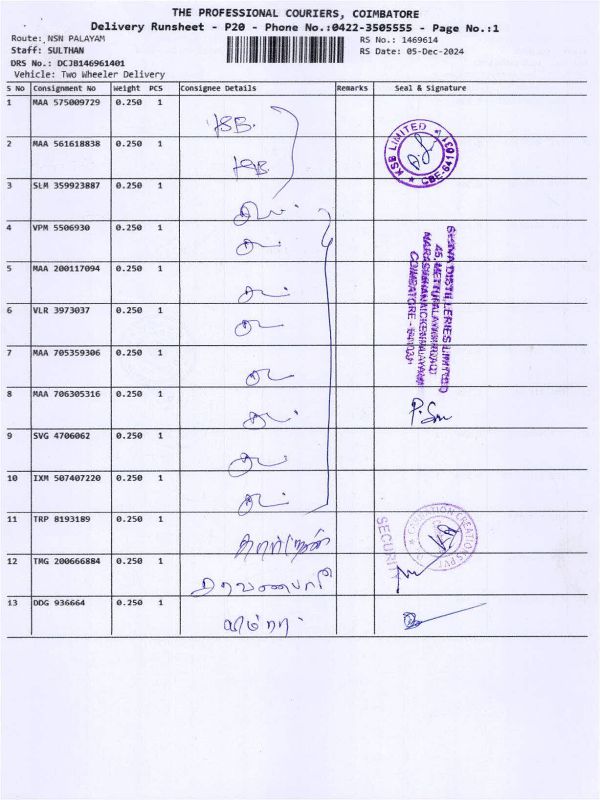 THE PROFESSIONAL COURIERS, COIMBATORE
Delivery Runsheet - P20 - Phone No.:0422-3505555 - Page No.:1
Route: NSN PALAYAM RS No.: 1469614
Staff: SULTHAN RS Date: 05-Dec-2024
DRS No.: DCJB146961401
Vehicle: Two Wheeler Delivery
S No Consignment No Weight PCS Consignee Details Remarks Seal & Signature
1 MAA 575009729 0.250 1 KSB.
2 MAA 561618838 0.250 1 KSB. KSB LIMITED ★ CBE-641031 ★
3 SLM 359923887 0.250 1
4 VPM 5506930 0.250 1
5 MAA 200117094 0.250 1
6 VLR 3973037 0.250 1
7 MAA 705359306 0.250 1
DISTILLERIES LIMITED
COIMBATORE - 641031
8 MAA 706305316 0.250 1
9 SVG 4706062 0.250 1
10 IXM 507407220 0.250 1
11 TRP 8193189 0.250 1
SECURITY
CREATIONS PVT
12 TMG 200666884 0.250 1
13 DDG 936664 0.250 1